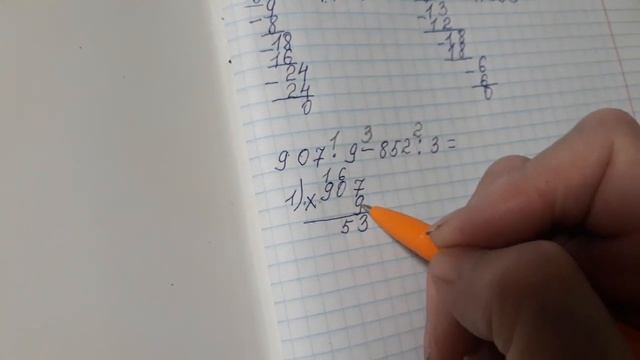 9
-8
-18
16
-24
24
0
-13
12
-18
18
-6
6
0
1 3 2
907 · 9 - 852 : 3 =
1 6
1) × 907
9
53